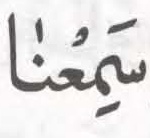 سَمِعْنٰا